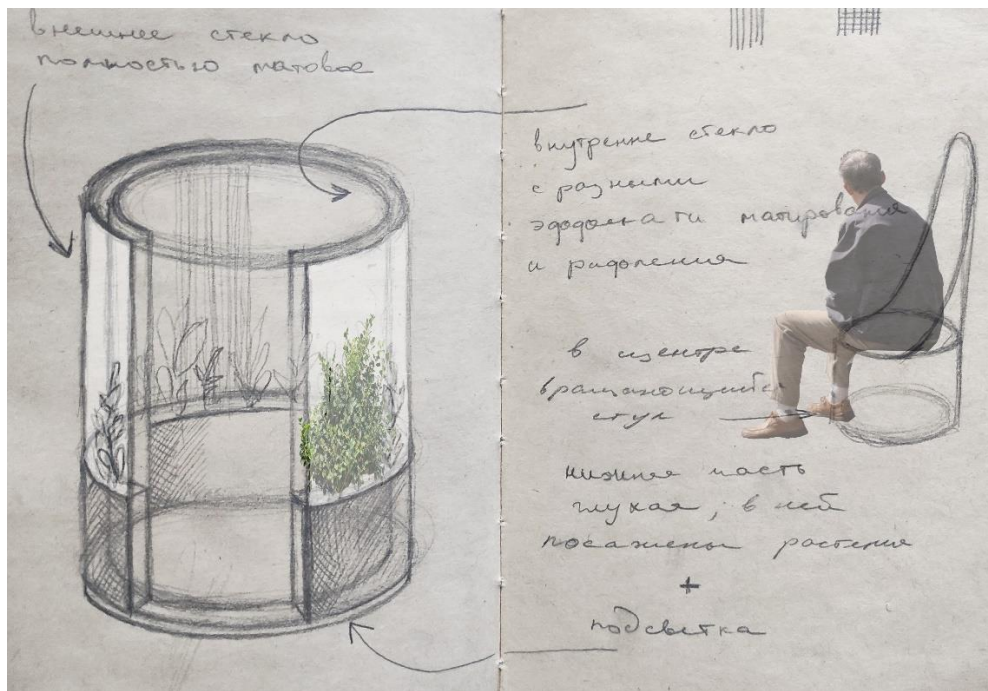 внешнее стекло
полностью матовое
внутренне стекло
с разными
матирования
и
в центре
вращающийся
стул
нижняя часть
глухая; в ней
посажены растения
+
подсветка